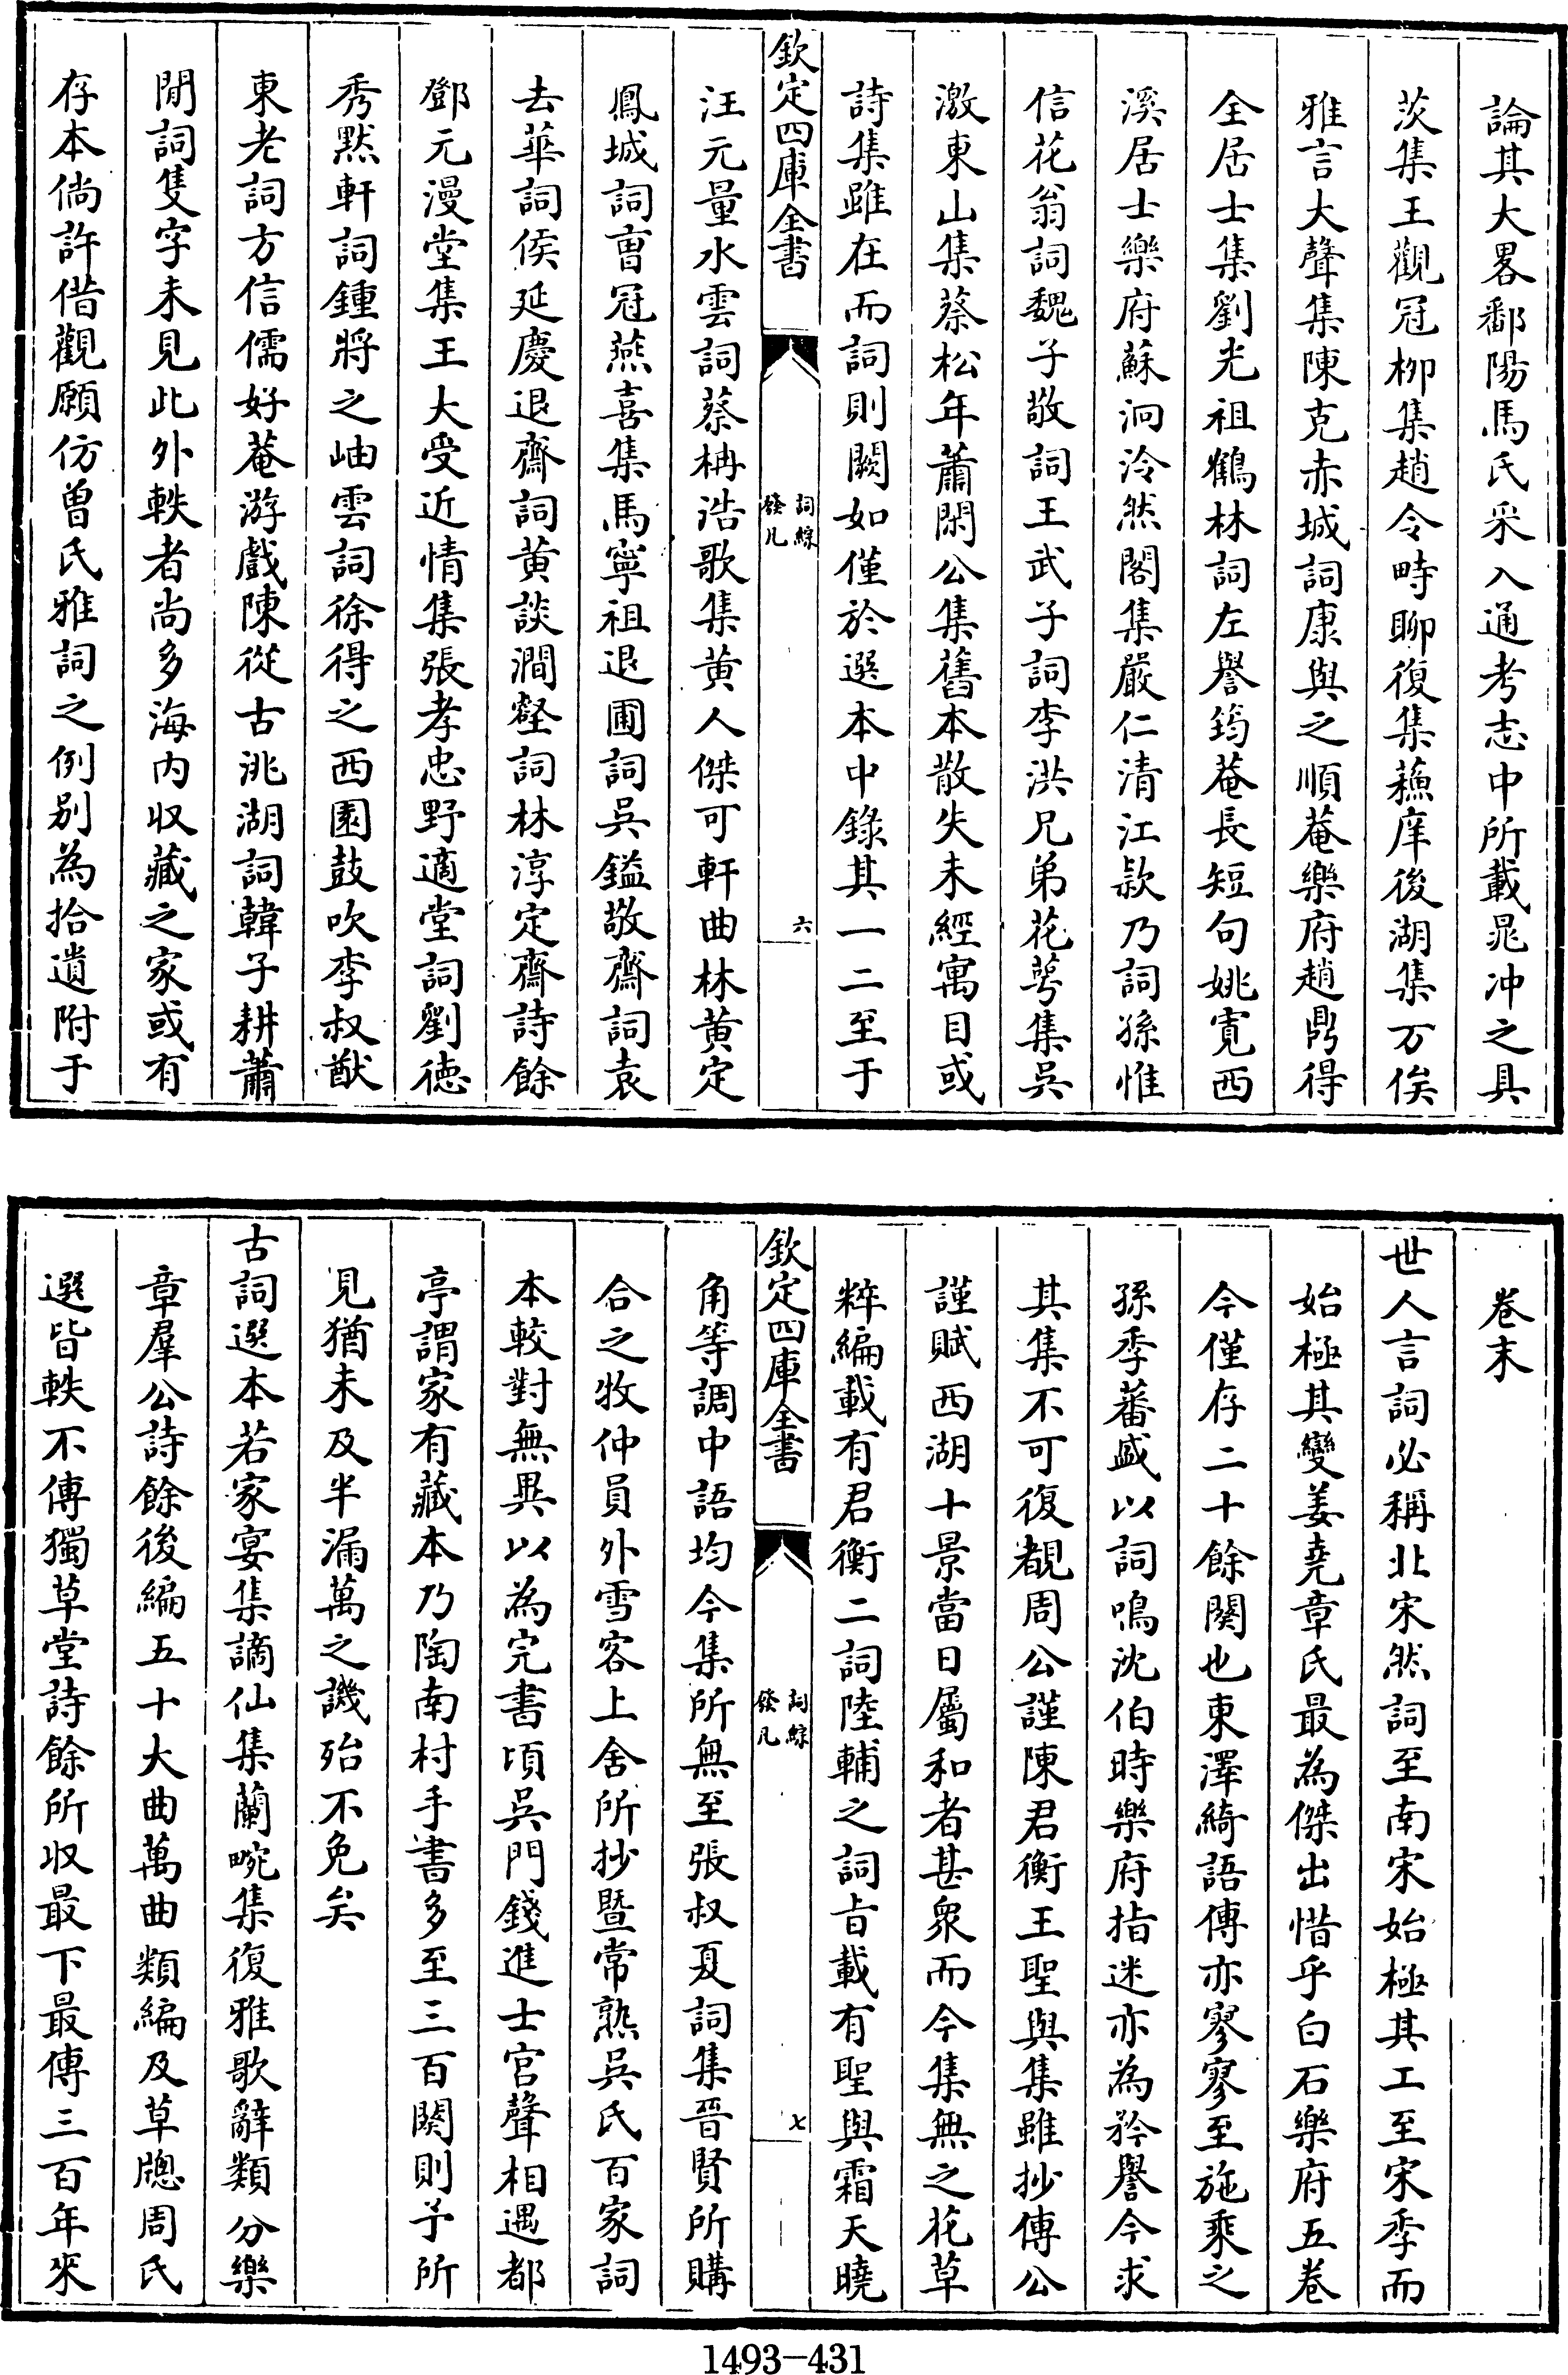 論其大畧鄱陽馬氏采入通考志中所載晁冲之具
茨集王觀冠栁集趙令畤聊復集蘓庠後湖集万俟
雅言大聲集陳克赤城詞康與之順菴樂府趙鼎得
全居士集劉光祖鶴林詞左譽筠菴長短句姚寛西
溪居士樂府蘇泂泠然閣集嚴仁清江欵乃詞孫惟
信花翁詞魏子敬詞王武子詞李洪兄弟花萼集吳
激東山集蔡松年蕭閑公集舊本散失未經寓目或
詩集雖在而詞則闕如僅於選本中錄其一二至于
欽定四庫全書
詞綜
發凡
六
汪元量水雲詞蔡柟浩歌集黄人傑可軒曲林黄定
鳳城詞曺冠燕喜集馬寧祖退圃詞吳鎰敬齋詞袁
去華詞侯延慶退齋詞黄談澗壑詞林淳定齋詩餘
鄧元漫堂集王大受近情集張孝忠野適堂詞劉德
秀黙軒詞鍾將之岫雲詞徐得之西園鼓吹李叔猷
東老詞方信儒好菴游戲陳從古洮湖詞韓子耕蕭
閒詞隻字未見此外軼者尚多海内収藏之家或有
存本倘許借觀願仿曾氏雅詞之例别為拾遺附于
卷末
世人言詞必稱北宋然詞至南宋始極其工至宋季而
始極其變姜堯章氏最為傑出惜乎白石樂府五巻
今僅存二十餘闋也東澤綺語傳亦寥寥至施乘之
孫季蕃盛以詞鳴沈伯時樂府指迷亦為矜譽今求
其集不可復覩周公謹陳君衡王聖與集雖抄傳公
謹賦西湖十景當日屬和者甚衆而今集無之花草
粹編載有君衡二詞陸輔之詞㫖載有聖與霜天曉
欽定四庫全書
詞綜
發凡
七
角等調中語均今集所無至張叔夏詞集晉賢所購
合之牧仲員外雪客上舍所抄暨常熟吳氏百家詞
本較對無異以為完書頃吳門錢進士宫聲相遇都
亭謂家有藏本乃陶南村手書多至三百闋則予所
見猶未及半漏萬之譏殆不免矣
古詞選本若家宴集謫仙集蘭畹集復雅歌辭類分樂
章羣公詩餘後編五十大曲萬曲類編及草牕周氏
選皆軼不傳獨草堂詩餘所収最下最傳三百年來
1493-431